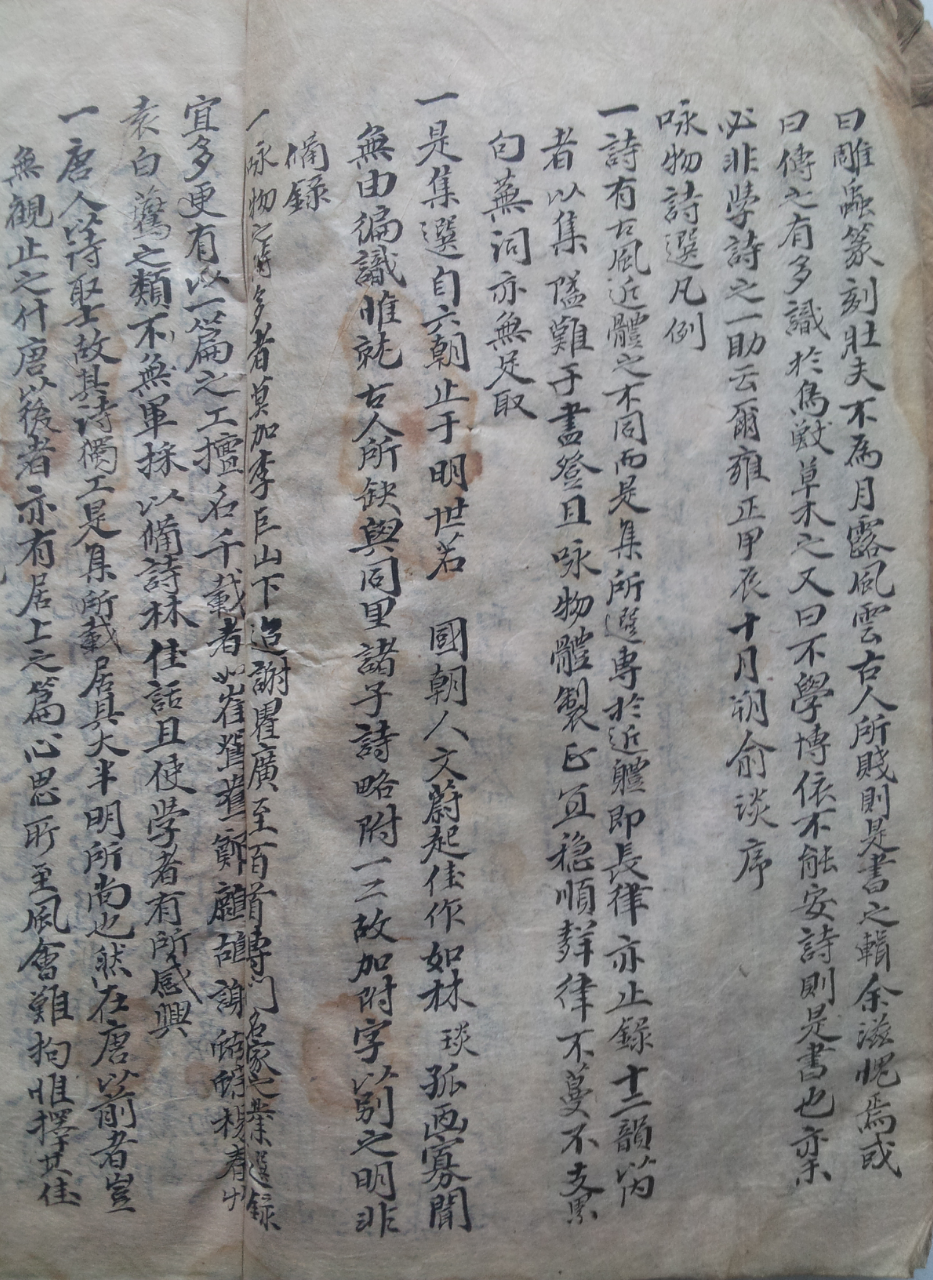 曰雕蟲篆刻壯夫不為月露風雲古人所賤則是書之輯余滋愧焉或
曰傳之有多識於鳥獸草木之又曰不學博依不能安詩則是書也亦
必非學詩之一助云爾雍正甲辰十月朔俞琰序
咏物詩選凡例
一詩有古風近體之不同而是集所選專於近體即長律亦止錄十二韻以內
者以集隘難于盡登且咏物體製正宜穩順聲律不蔓不支累
句蕪詞亦無足取
一是集選自六朝止于明世若 國朝人文蔚起佳作如林琰孤陋寡聞
無由徧識唯就古人所缺與同里諸子詩略附一二故加附字以別之明非
備錄
一咏物之詩多者莫加李巨山下迨謝瞿廣至百首專門名家之業選錄
宜多更有以一篇之工擅名千載者如崔鴛鴦鄭鷓鴣謝蝴蝶楊春草
袁白鷰之類不無軍採以備詩林佳話且使学者有所感興
一唐人以詩取士故其詩獨工是集所載居其大半明所尚也然在唐以前者豈
無觀止之什唐以後者亦有居上之篇心思所至風會難拘惟擇其佳